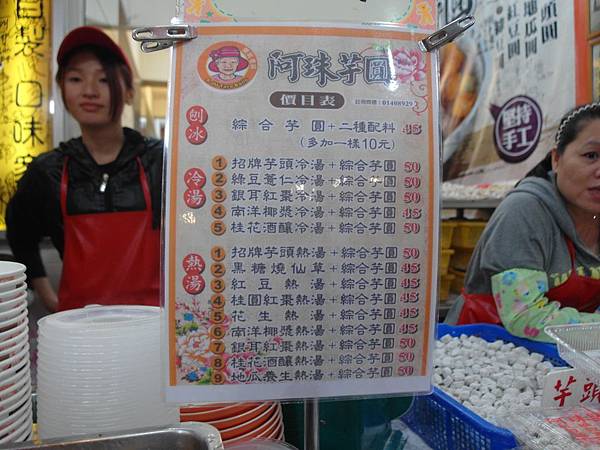 阿珠芋圓
價目表
註冊商標:01408929
刨冰
綜合芋圓+二種配料 45
(多加一樣10元)
冷湯
1 招牌芋頭冷湯+綜合芋圓 50
2 綠豆薏仁冷湯+綜合芋圓 50
3 銀耳紅棗冷湯+綜合芋圓 50
4 南洋椰漿冷湯+綜合芋圓 45
5 桂花酒釀冷湯+綜合芋圓 50
熱湯
1 招牌芋頭熱湯+綜合芋圓 50
2 黑糖燒仙草+綜合芋圓 45
3 紅豆熱湯+綜合芋圓 45
4 桂圓紅棗熱湯+綜合芋圓 45
5 花生熱湯+綜合芋圓 45
6 南洋椰漿熱湯+綜合芋圓 45
7 銀耳紅棗熱湯+綜合芋圓 50
8 桂花酒釀熱湯+綜合芋圓 50
9 地瓜養生熱湯+綜合芋圓 50
堅持手工
紅豆圓
地瓜圓
口味